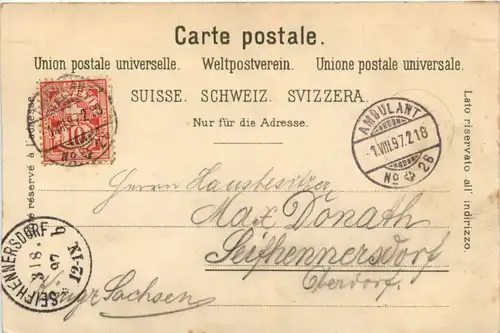 Carte postale.
Union postale universelle. Weltpostverein. Unione postale universale.
SUISSE. SCHWEIZ. SVIZZERA.
Nur für die Adresse.
é réservé à l'adresse.
Lato riservato all' indirizzo.
10
AMBULANT
1.VIII.97.218
No 26
Herrn Hausbesitzer
Max Donath
Seifhennersdorf
Oberdorf.
Königr Sachsen
SEIFHENNERSDORF b
3 8
97
12-1N